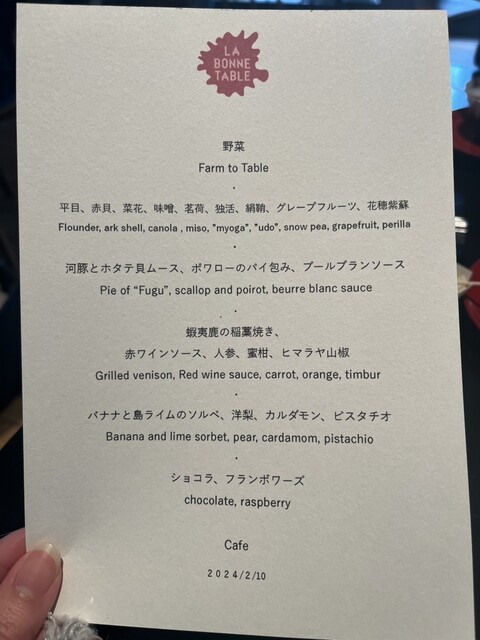 LA
BONNE
TABLE
野菜
Farm to Table
平目、赤貝、菜花、味噌、茗荷、独活、絹鞘、グレープフルーツ、花穂紫蘇
Flounder, ark shell, canola , miso, "myoga", "udo", snow pea, grapefruit, perilla
河豚とホタテ貝ムース、ポワローのパイ包み、ブールブランソース
Pie of “Fugu”, scallop and poirot, beurre blanc sauce
蝦夷鹿の稲藁焼き、
赤ワインソース、人参、蜜柑、ヒマラヤ山椒
Grilled venison, Red wine sauce, carrot, orange, timbur
バナナと島ライムのソルベ、洋梨、カルダモン、ピスタチオ
Banana and lime sorbet, pear, cardamom, pistachio
ショコラ、フランボワーズ
chocolate, raspberry
Cafe
2024/2/10